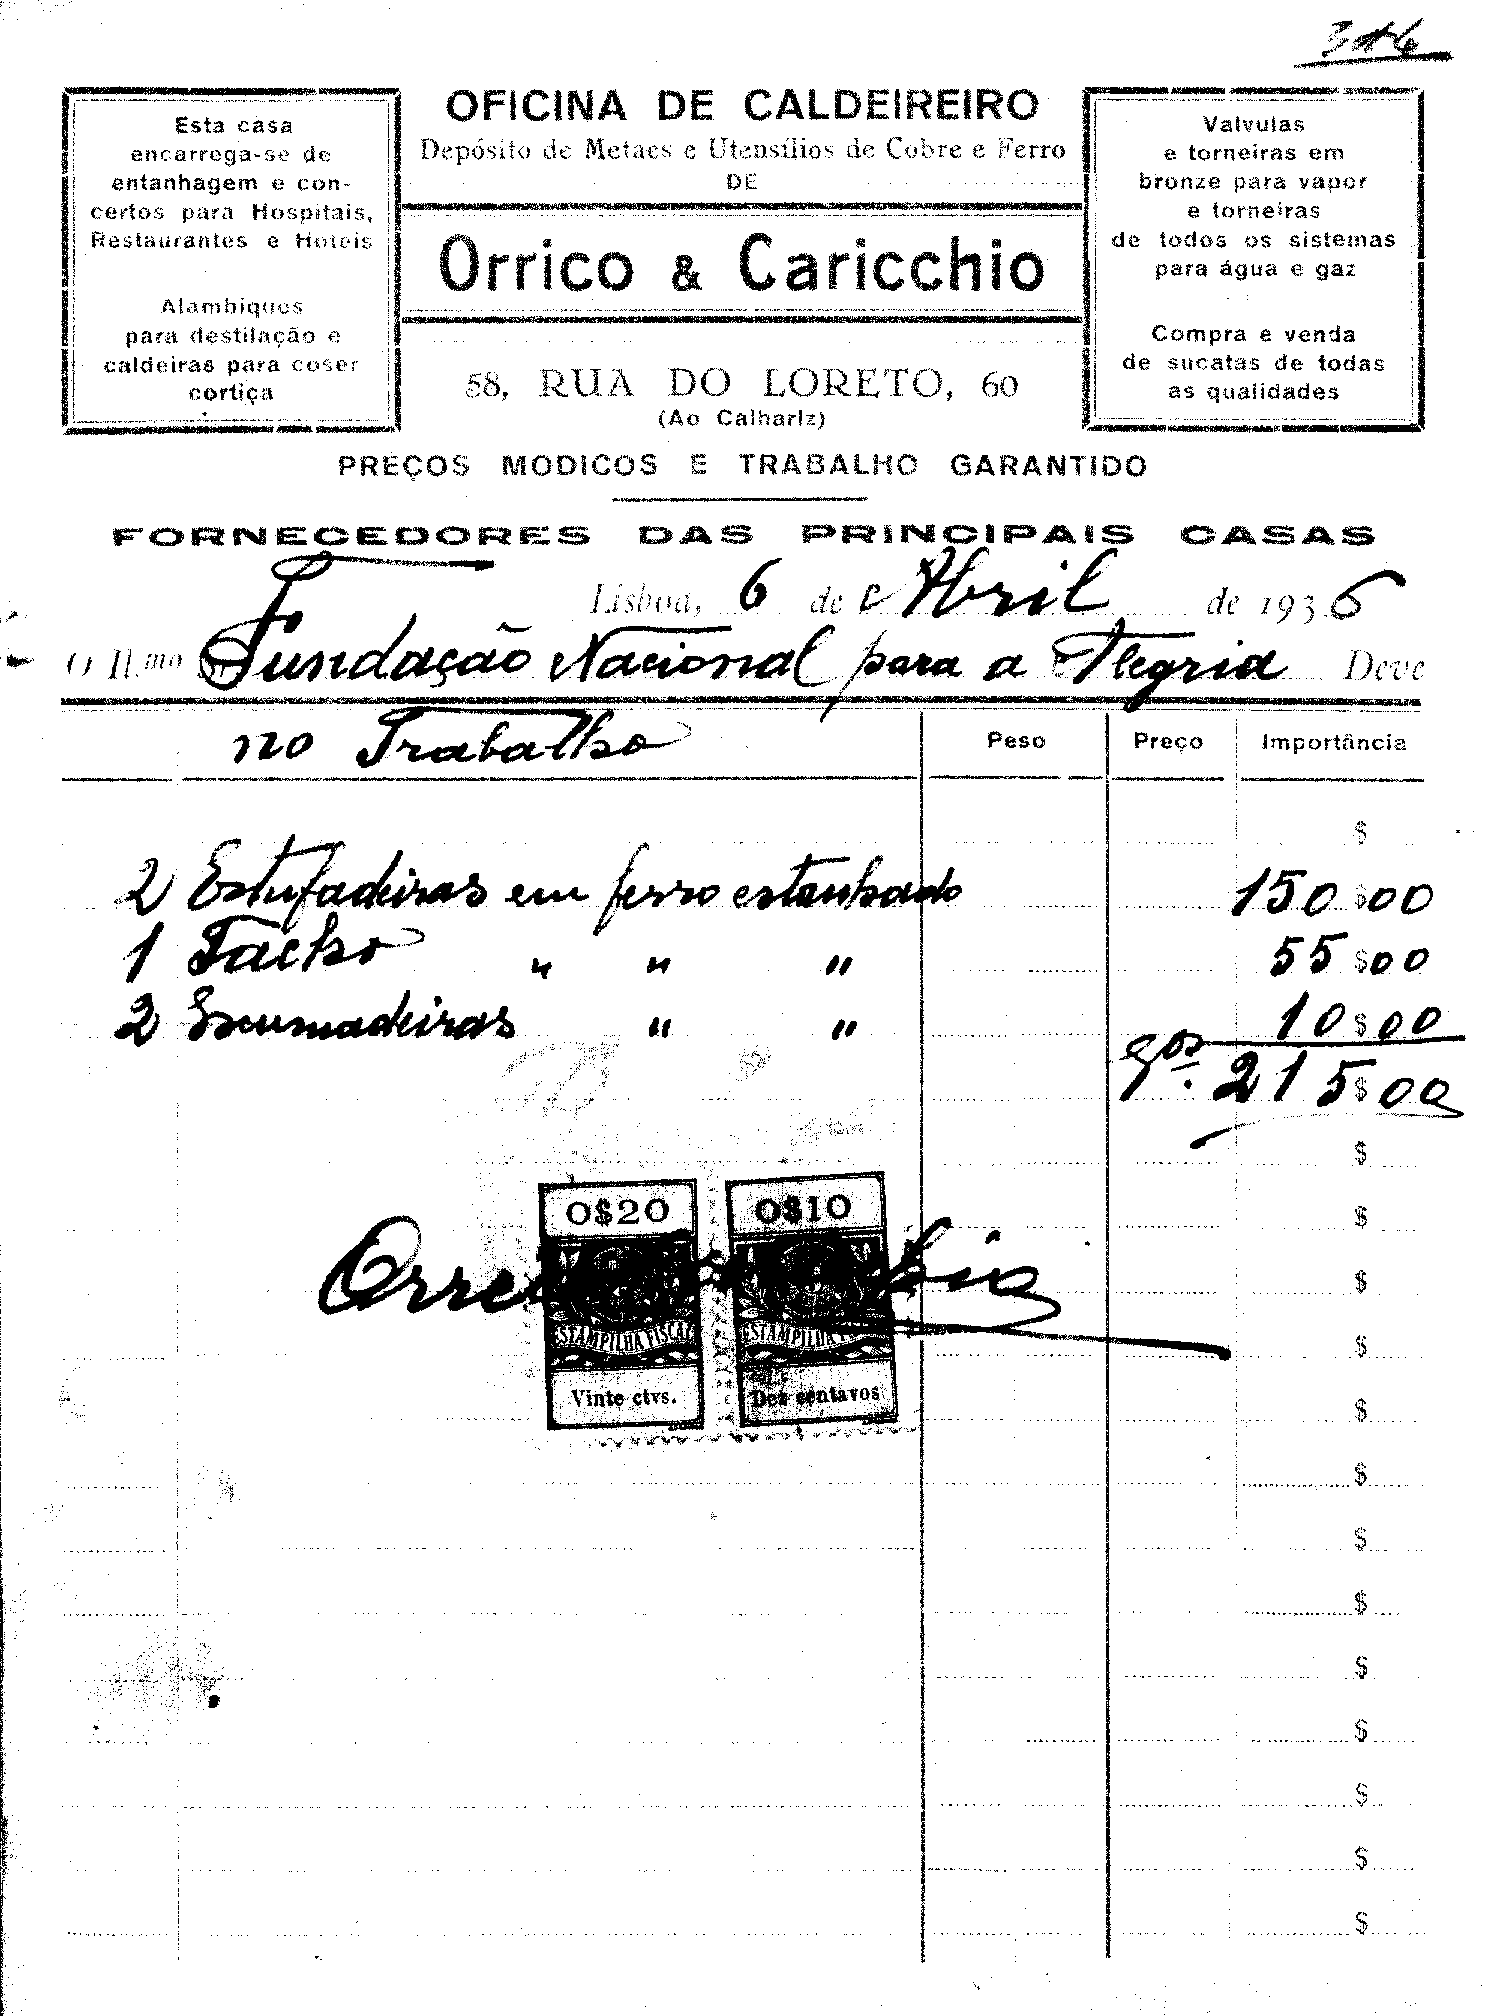 Esta casa
encarrega-se de
entanhagem e con-
certos para Hospitais,
Restaurantes e Hoteis
Alambiques
para destilação e
caldeiras para coser
cortiça
OFICINA DE CALDEIREIRO
Depósito de Metaes e Utensílios de Cobre e Ferro
DE
Orrico & Caricchio
58, RUA DO LORETO, 60
(Ao Calhariz)
Valvulas
e torneiras em
bronze para vapor
e torneiras
de todos os sistemas
para água e gaz
Compra e venda
de sucatas de todas
as qualidades
PREÇOS MODICOS E TRABALHO GARANTIDO
FORNECEDORES DAS PRINCIPAIS CASAS
Lisboa, 6 de Abril de 1936
O Il.mo Fundação Nacional para a Alegria Deve
no Trabalho Peso Preço Importância
$
2 Estufadeiras em ferro estanhado 150$00
1 Tacho " " " 55$00
2 Escumadeiras " " 10$00
215$00
$
$
$
$
$
$
$
$
$
$
$
$
$
0$20
ESTAMPILHA FISCAL
Vinte ctvs.
0$10
ESTAMPILHA
Dez centavos